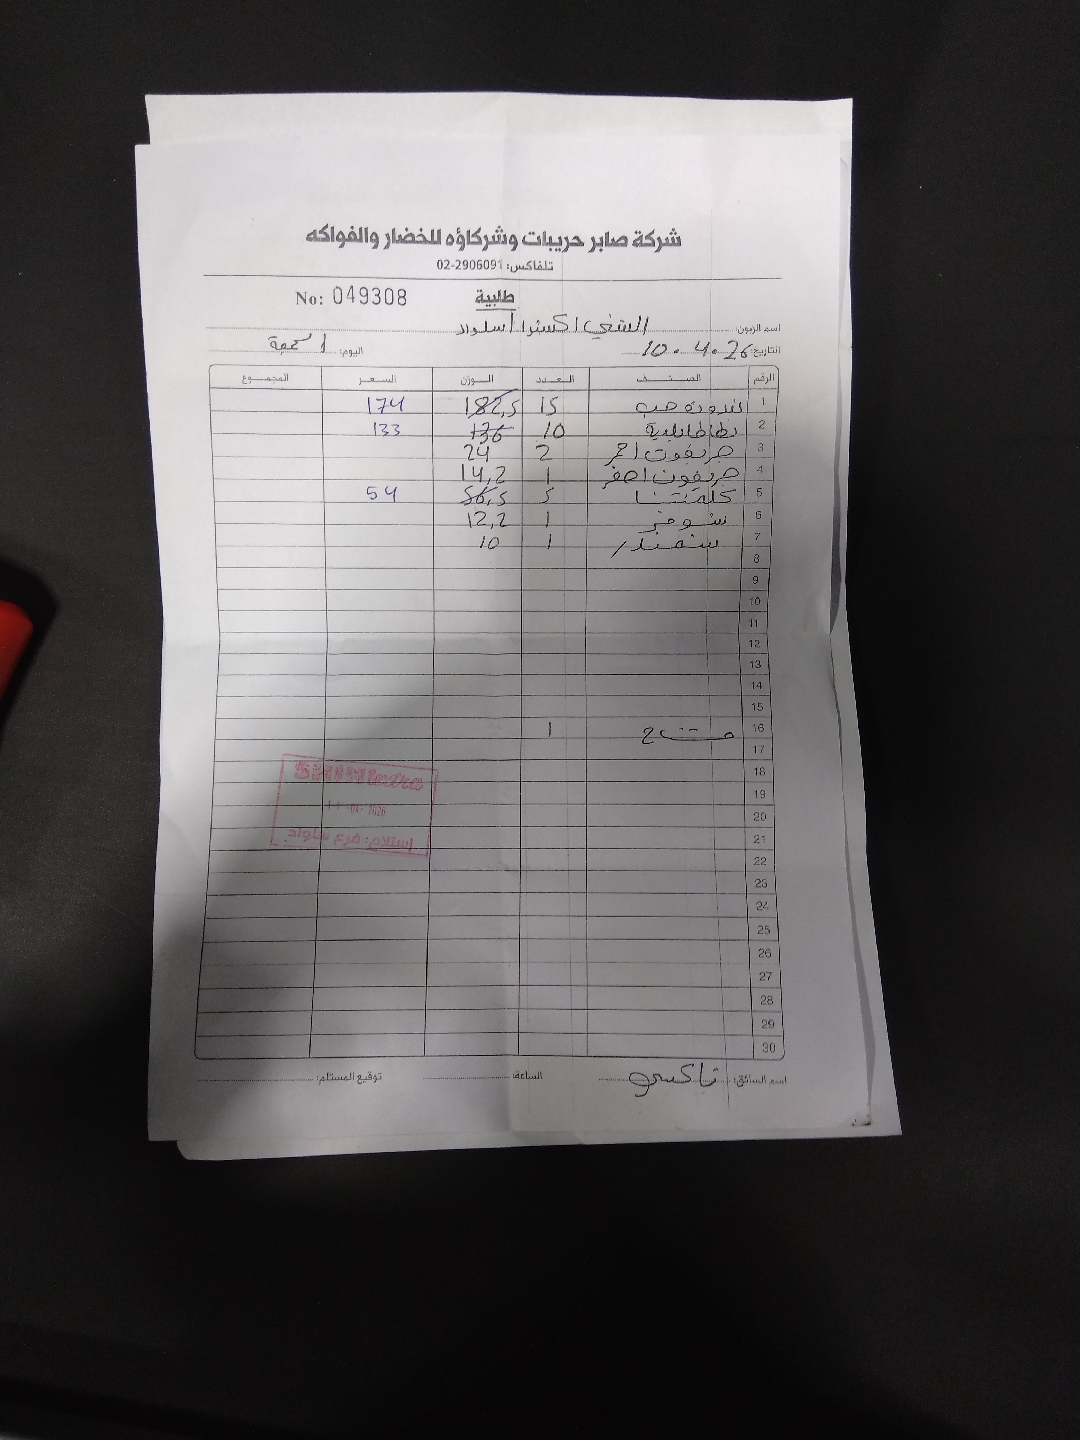 شركة صابر حريبات وشركاؤه للخضار والفواكه
تلفاكس: 02-2906091
طلبية No: 049308
اسم الزبون: الشني اكسترا / سلواد
التاريخ: 10.4.26 اليوم: الجمعة
الرقم الصنف العدد الوزن السعر المجموع
1 بندورة حب 15 182,5 174
2 بطاطا بلدية 10 136 133
3 جريفوت احمر 2 24
4 جريفوت اصفر 1 14,2
5 كلمنتينا 5 56,5 54
6 شومر 1 12,2
7 شمندر 1 10
8
9
10
11
12
13
14
15
16 1
17
18
19
20
21
22
23
24
25
26
27
28
29
30
اسم السائق: تاكسي الساعة: توقيع المستلم: